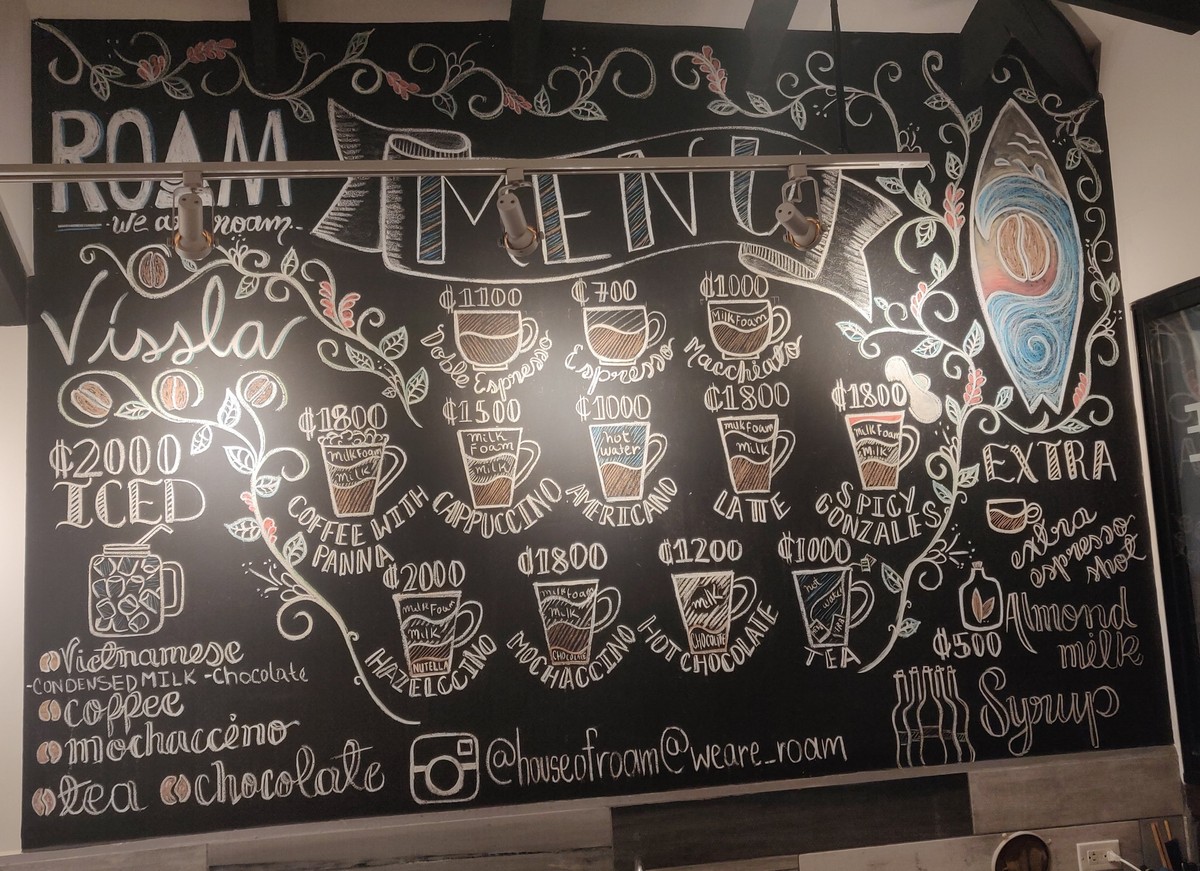 ROAM
MENU
we are roam
Vissla
₡1100
Doble Espresso
₡700
Espresso
₡1000
Milk Foam
Macchiato
₡1800
Milk Foam
Milk
COFFEE WITH
PANNA
₡1500
Milk
Foam
Milk
CAPPUCCINO
₡1000
hot
water
AMERICANO
₡1800
Milk Foam
Milk
LATTE
₡1800
Milk Foam
Milk
SPICY
GONZALES
₡2000
Milk Foam
Milk
NUTELLA
HAZELCCINO
₡1800
Milk Foam
Milk
CHOCOLATE
MOCHACCINO
₡1200
Milk
CHOCOLATE
HOT CHOCOLATE
₡1000
hot
water
TEA
₡2000
ICED
Vietnamese
-CONDENSED MILK -Chocolate
coffee
mochaccino
tea chocolate
EXTRA
extra
espresso
shot
Almond
milk
₡500
Syrup
@houseofroam @weare_roam